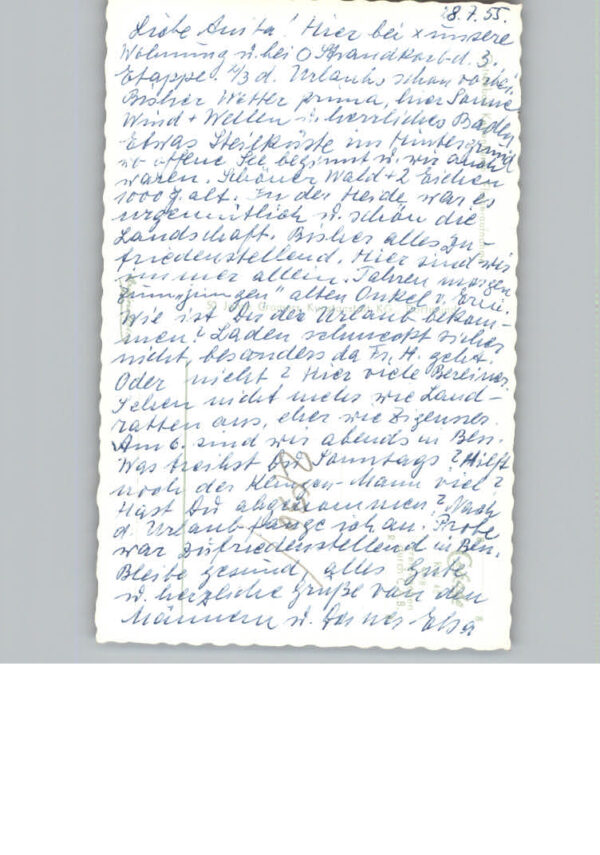 28.7.55.
Liebe Anita! Hier bei x unsere
Wohnung u. bei O Strandkorb d. 3.
Etappe. 2/3 d. Urlaubs schon vorbei.
Bisher Wetter prima, hier Sonne
Wind + Wellen u. herrliches Baden
Etwas Steilküste im Hintergrund
wo offene See beginnt u. wir auch
waren. Schöner Wald + 2 Eichen
1000 J. alt. In der Heide war es
urgemütlich u. schön die
Landschaft. Bisher alles zu-
friedenstellend. Hier sind wir
immer allein. Fahren morgen
zum "jungen" alten Onkel v.
Wie ist Dir der Urlaub bekom-
men? Laden schmeckt sicher
nicht, besonders da Fr. H. geht.
Oder nicht? Hier viele Berliner.
Sehen nicht mehr wie Land-
ratten aus, eher wie Zigeuner.
Am 6. sind wir abends in
Was treibst Du Sonntags? Hilft
noch der Mann viel?
Hast Du abgenommen? Nach
d. Urlaub fange ich an. Probe
war zufriedenstellend in
Bleibe gesund, alles Gute
u. herzliche Grüße von den
Männern u. Deiner Elsa